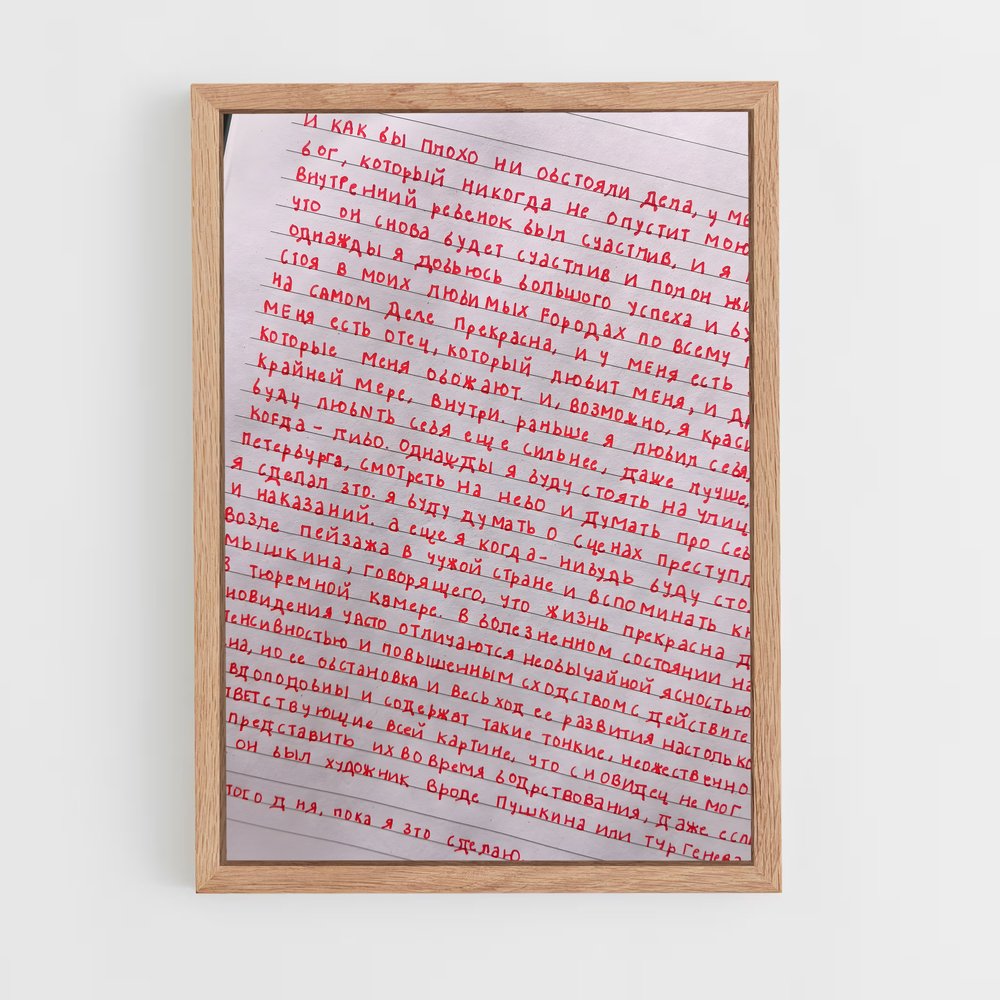 и как бы плохо ни обстояли дела, у ме
бог, который никогда не опустит мою
внутренний ребенок был счастлив, и я
что он снова будет счастлив и полон жи
однажды я добьюсь большого успеха и бу
стоя в моих любимых городах по всему
на самом деле прекрасна, и у меня есть
меня есть отец, который любит меня, и др
которые меня обожают. и, возможно, я краси
крайней мере, внутри. раньше я любил себя,
буду любить себя еще сильнее, даже лучше,
когда-либо. однажды я буду стоять на улиц
петербурга, смотреть на небо и думать про себ
я сделал это. я буду думать о сценах преступл
и наказаний. а еще я когда-нибудь буду сто
возле пейзажа в чужой стране и вспоминать кн
мышкина, говорящего, что жизнь прекрасна д
в тюремной камере. в болезненном состоянии на
новидения часто отличаются необычайной ясностью
тенсивностью и повышенным сходством с действите
на, но ее обстановка и весь ход ее развития настолько
вдоподобны и содержат такие тонкие, неожественно
тветствующие всей картине, что сновидец не мог
представить их во время бодрствования, даже есл
он был художник вроде пушкина или тургенева
того дня, пока я это сделаю